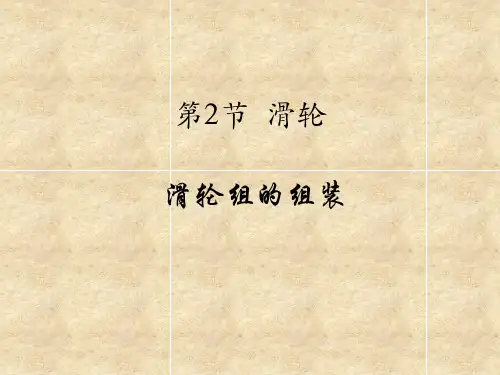 第2节 滑轮
滑轮组的组装